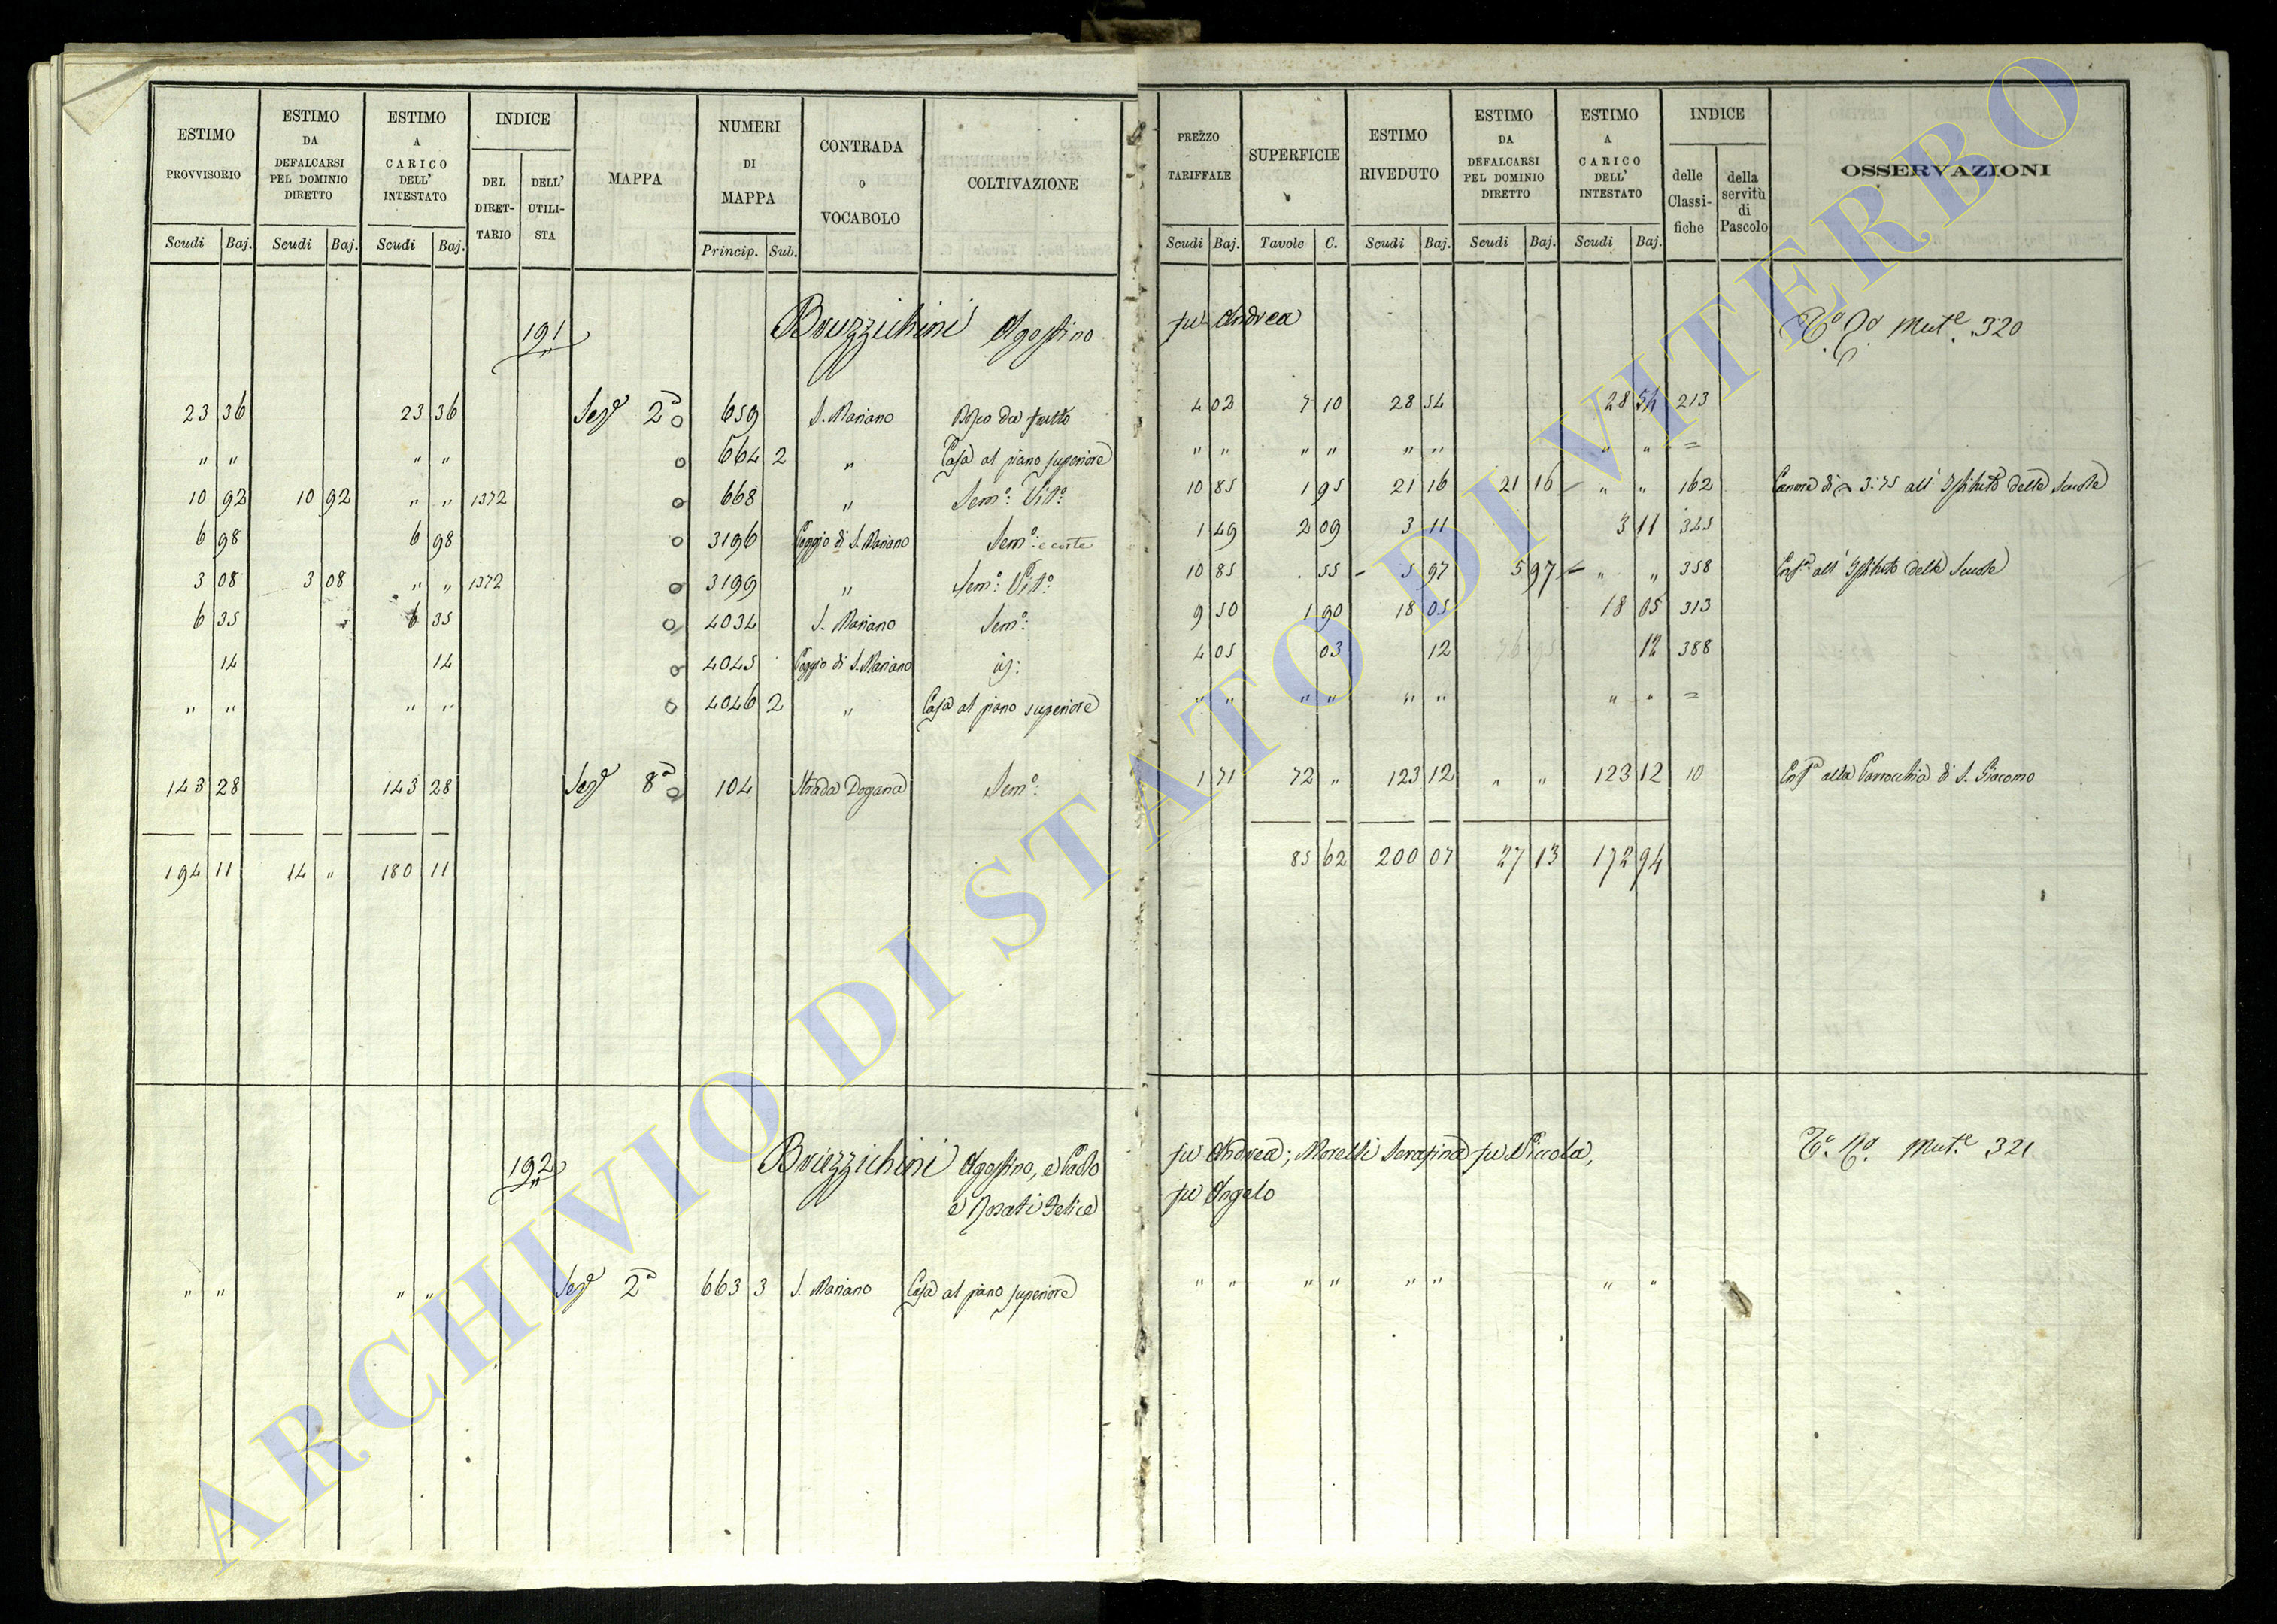 ESTIMO PROVVISORIO ESTIMO DA DEFALCARSI PEL DOMINIO DIRETTO ESTIMO A CARICO DELL' INTESTATO INDICE DEL DIRETTARIO DELL' UTILISTA MAPPA NUMERI DI MAPPA CONTRADA O VOCABOLO COLTIVAZIONE PREZZO TARIFFALE SUPERFICIE ESTIMO RIVEDUTO ESTIMO DA DEFALCARSI PEL DOMINIO DIRETTO ESTIMO A CARICO DELL' INTESTATO INDICE delle Classifiche della servitù di Pascolo OSSERVAZIONI
Scudi Baj. Scudi Baj. Scudi Baj. Princip. Sub. Scudi Baj. Tavole C. Scudi Baj. Scudi Baj. Scudi Baj.
191 Bruzzichini Agostino fu Andrea Mut.e 320
23 36 23 36 Sez.e 2a 659 S. Mariano Bosco da frutto 4 02 7 10 28 54 28 54 213
" " " " 664 2 " Casa al piano superiore " " " " " " " " =
10 92 10 92 " " 1372 668 " Sem.o Vit.o 10 85 1 95 21 16 21 16 " " 162 Canone di 3:75 all' Istituto delle Scuole
6 98 6 98 3196 Poggio di S. Mariano Sem.o e corte 1 49 2 09 3 11 3 11 345
3 08 3 08 " " 1372 3199 " Sem.o Vit.o 10 85 . 55 5 97 5 97 " " 358 all' Istituto delle Scuole
6 35 6 35 4034 S. Mariano Sem.o 9 50 1 90 18 05 18 05 313
14 14 4045 Poggio di S. Mariano id: 4 05 03 12 12 388
" " " " 4046 2 " Casa al piano superiore " " " " " " " " =
143 28 143 28 Sez.e 8a 104 Strada Dogana Sem.o 1 71 72 " 123 12 " " 123 12 10 alla Parrocchia di S. Giacomo
194 11 14 " 180 11 85 62 200 07 27 13 172 94
192 Bruzzichini Agostino, e Paolo fu Andrea; Morelli Serafina fu Niccola, Mut.e 321
e Rosati Felice fu Angelo
" " " " Sez.e 2a 663 3 S. Mariano Casa al piano superiore " " " " " " " "
ARCHIVIO DI STATO DI VITERBO